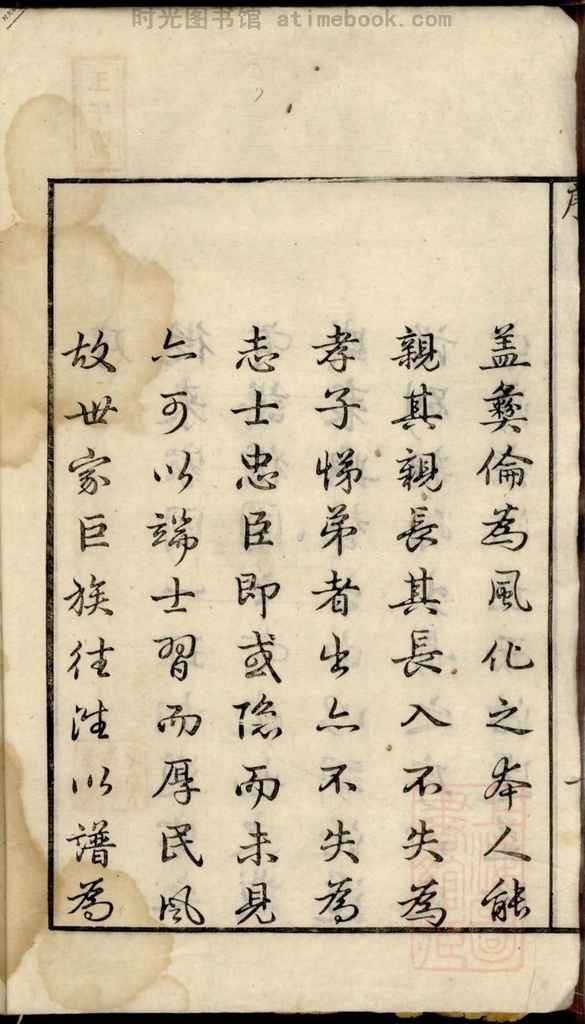 时光图书馆 atimebook.com
序
盖彝倫為風化之本人能
親其親長其長入不失為
孝子悌弟者出亦不失為
志士忠臣即或隐而未見
亦可以端士習而厚民風
故世家巨族往往以譜為